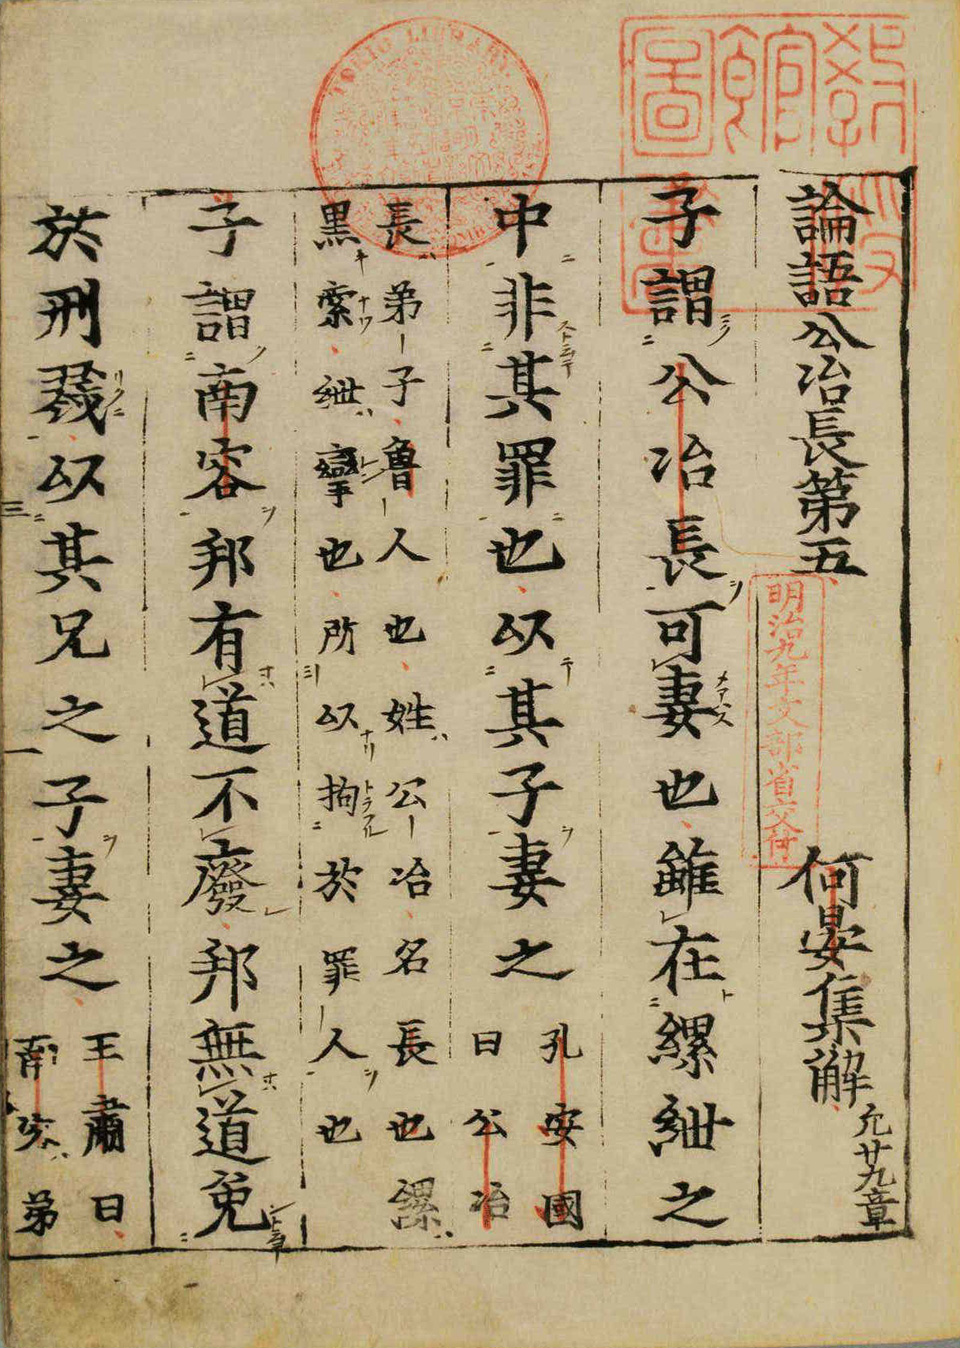 論語公冶長第五
何晏集解
凡廿九章
子謂公冶長可妻也雖在縲紲之
中非其罪也以其子妻之
孔安國
曰公冶
長弟子魯人也姓公冶名長也縲
黒索紲攣也所以拘於罪人也
子謂南容邦有道不廢邦無道免
於刑戮以其兄之子妻之
王肅曰
南容弟
明治九年文部省交付
TOKIO LIBRARY